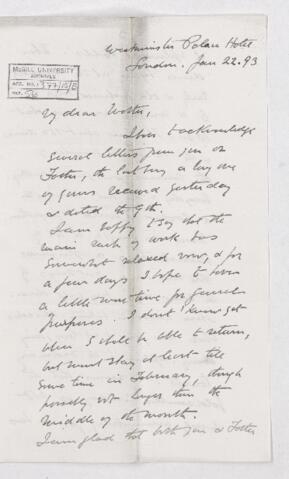 Westminster Palace Hotel
London. Jan 22. 93
McGILL UNIVERSITY
ARCHIVES
ACC. NO.
REF.
My dear
I have to acknowledge
several letters from you or
Foster, the last being a long one
of yours received yesterday
& dated the 9th.
I am happy to say that the
main rush of work has
somewhat relaxed now, & for
a few days I hope to have
a little more time for general
purposes. I don't know yet
when I shall be able to return,
but must stay at least till
some time in February, though
possibly not longer than the
middle of the month.
I am glad that both you & Foster